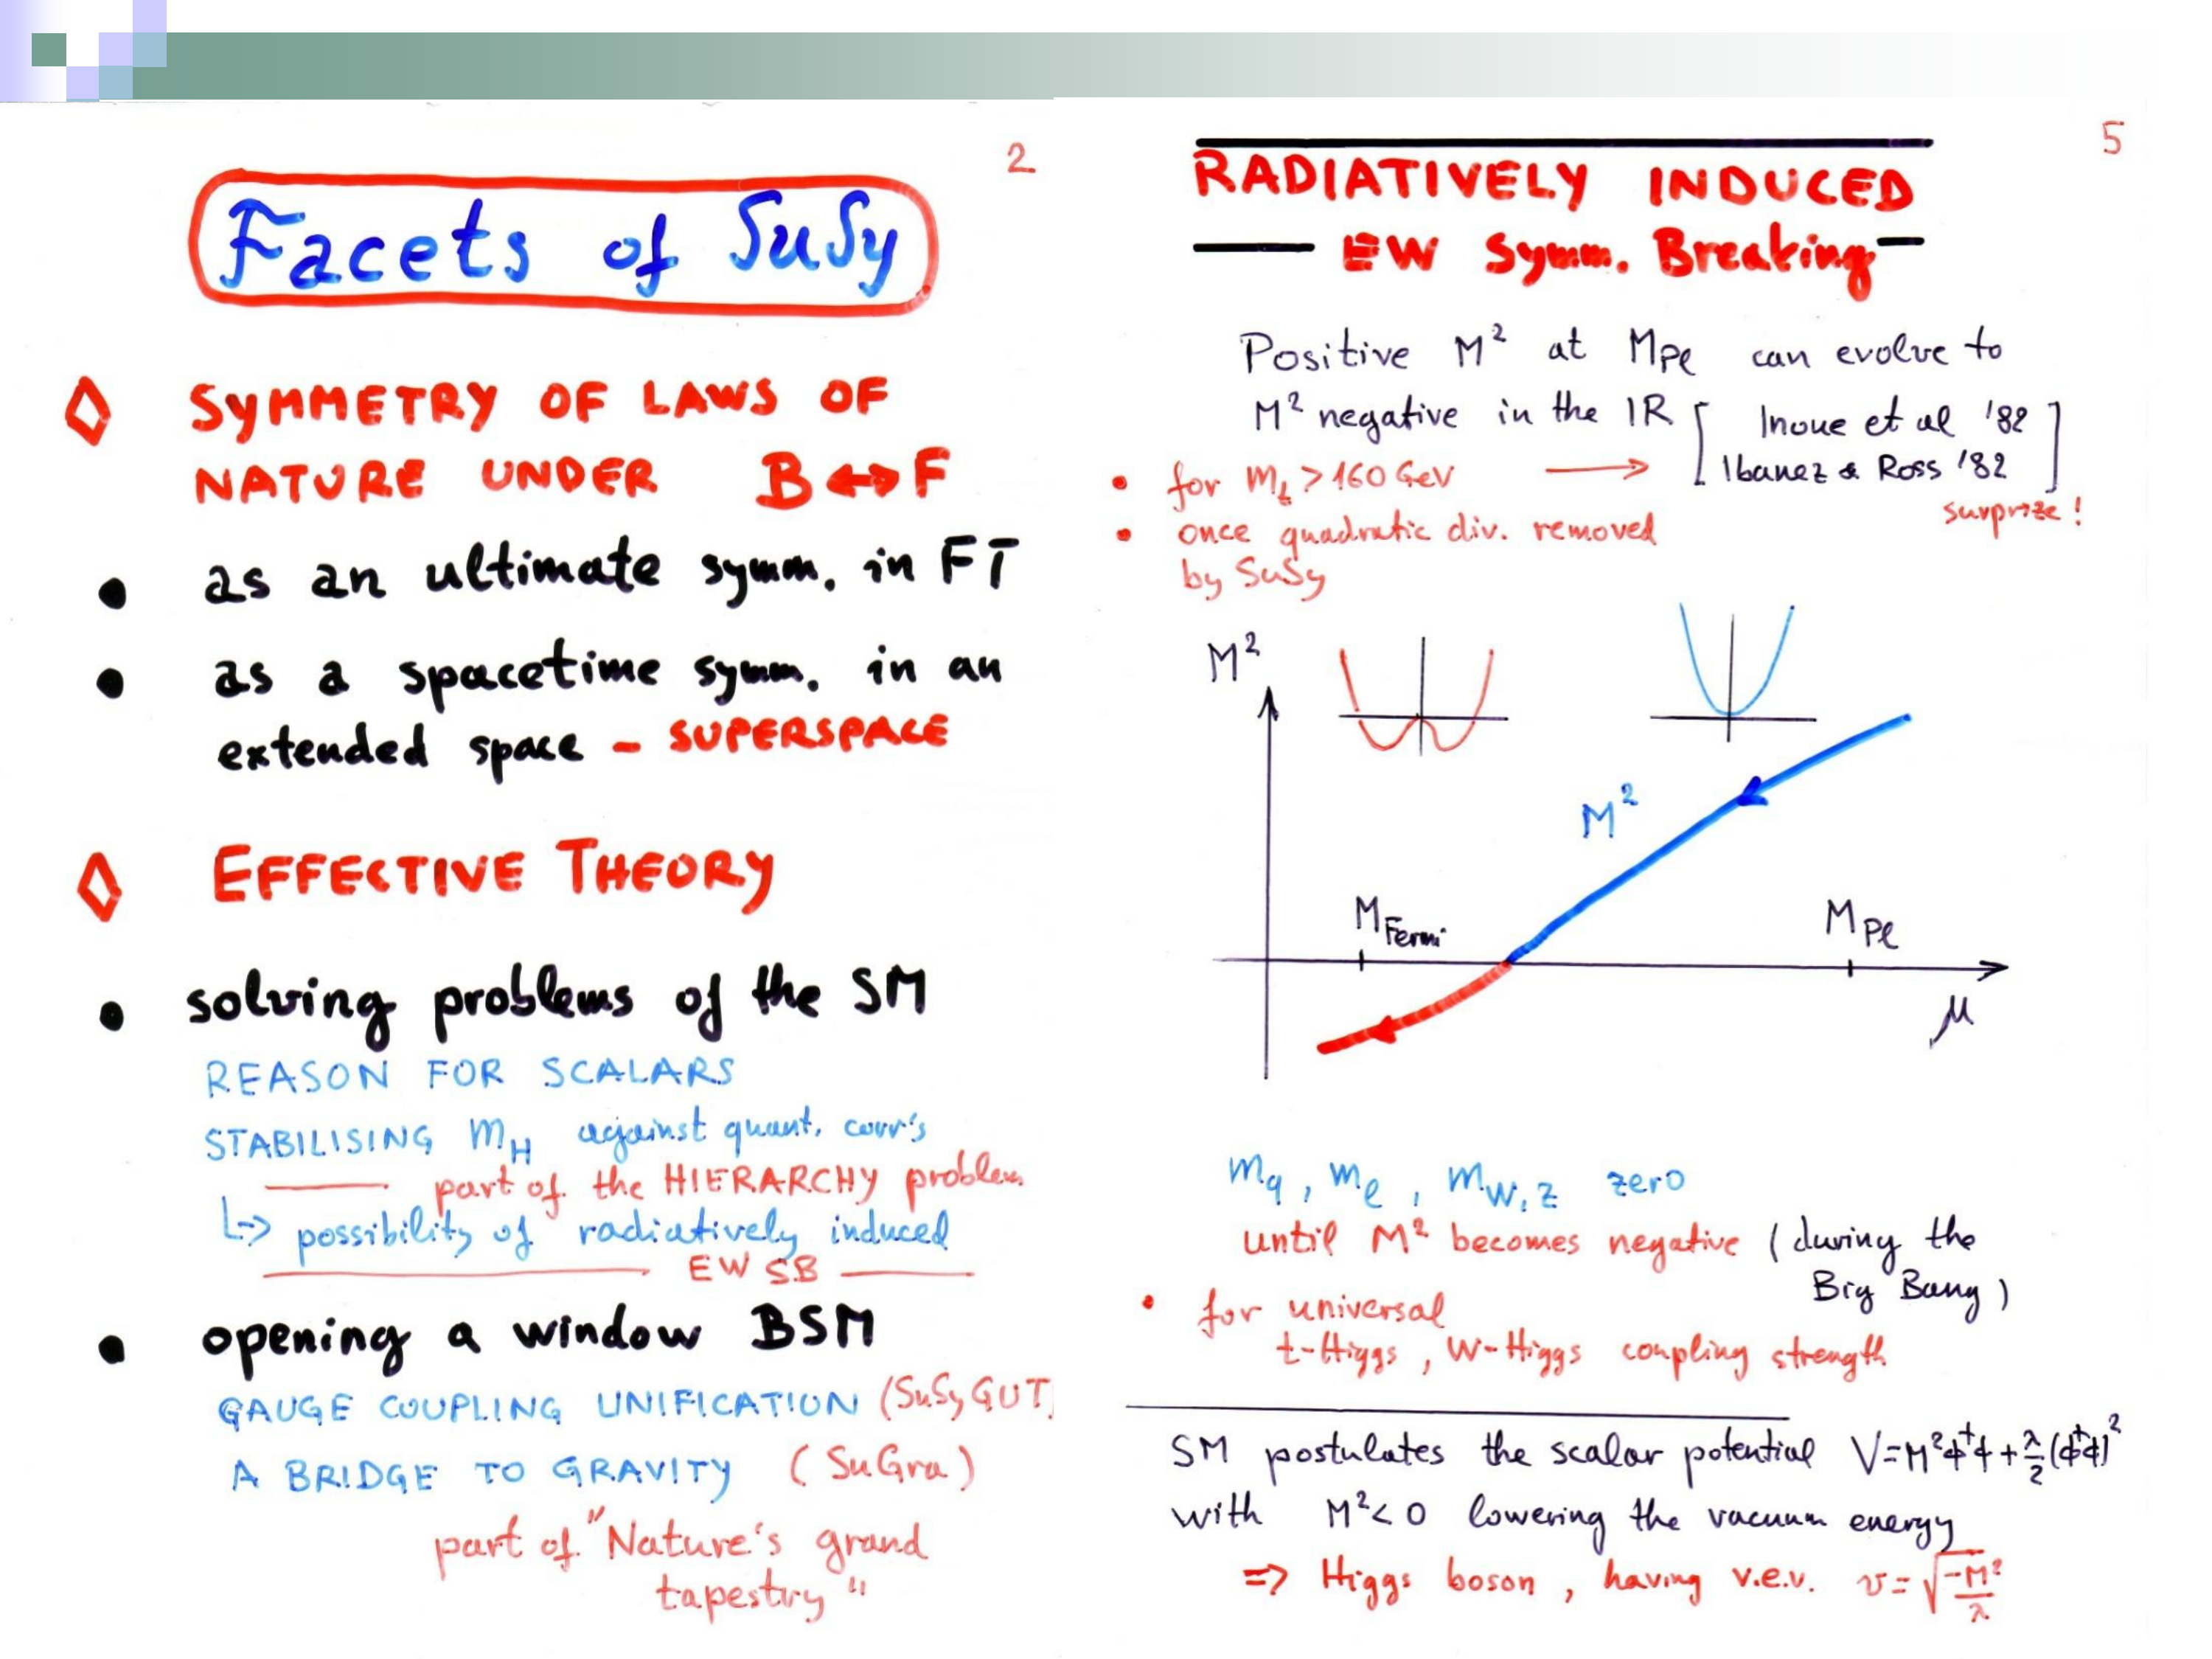 2
Facets of SuSy
◊ SYMMETRY OF LAWS OF
NATURE UNDER B ↔ F
• as an ultimate symm. in FT
• as a spacetime symm. in an
extended space – SUPERSPACE
◊ EFFECTIVE THEORY
• solving problems of the SM
REASON FOR SCALARS
STABILISING m_H against quant. corr's
part of the HIERARCHY problem
↳ possibility of radiatively induced
EW SB
• opening a window BSM
GAUGE COUPLING UNIFICATION (SuSy GUT
A BRIDGE TO GRAVITY (SuGra)
part of "Nature's grand
tapestry"
5
RADIATIVELY INDUCED
EW Symm. Breaking
Positive M² at M_Pl can evolve to
M² negative in the IR [ Inoue et al '82
• for m_t > 160 GeV → Ibanez & Ross '82 ]
surprize!
• once quadratic div. removed
by SuSy
M²
M²
M_Fermi
M_Pl
μ
m_q, m_l, m_W,Z zero
until M² becomes negative (during the
Big Bang)
• for universal
t-Higgs, W-Higgs coupling strength
SM postulates the scalar potential V=M²ϕ†ϕ+λ/2(ϕ†ϕ)²
with M²<0 lowering the vacuum energy
⇒ Higgs boson, having v.e.v. v=√(-M²/λ)